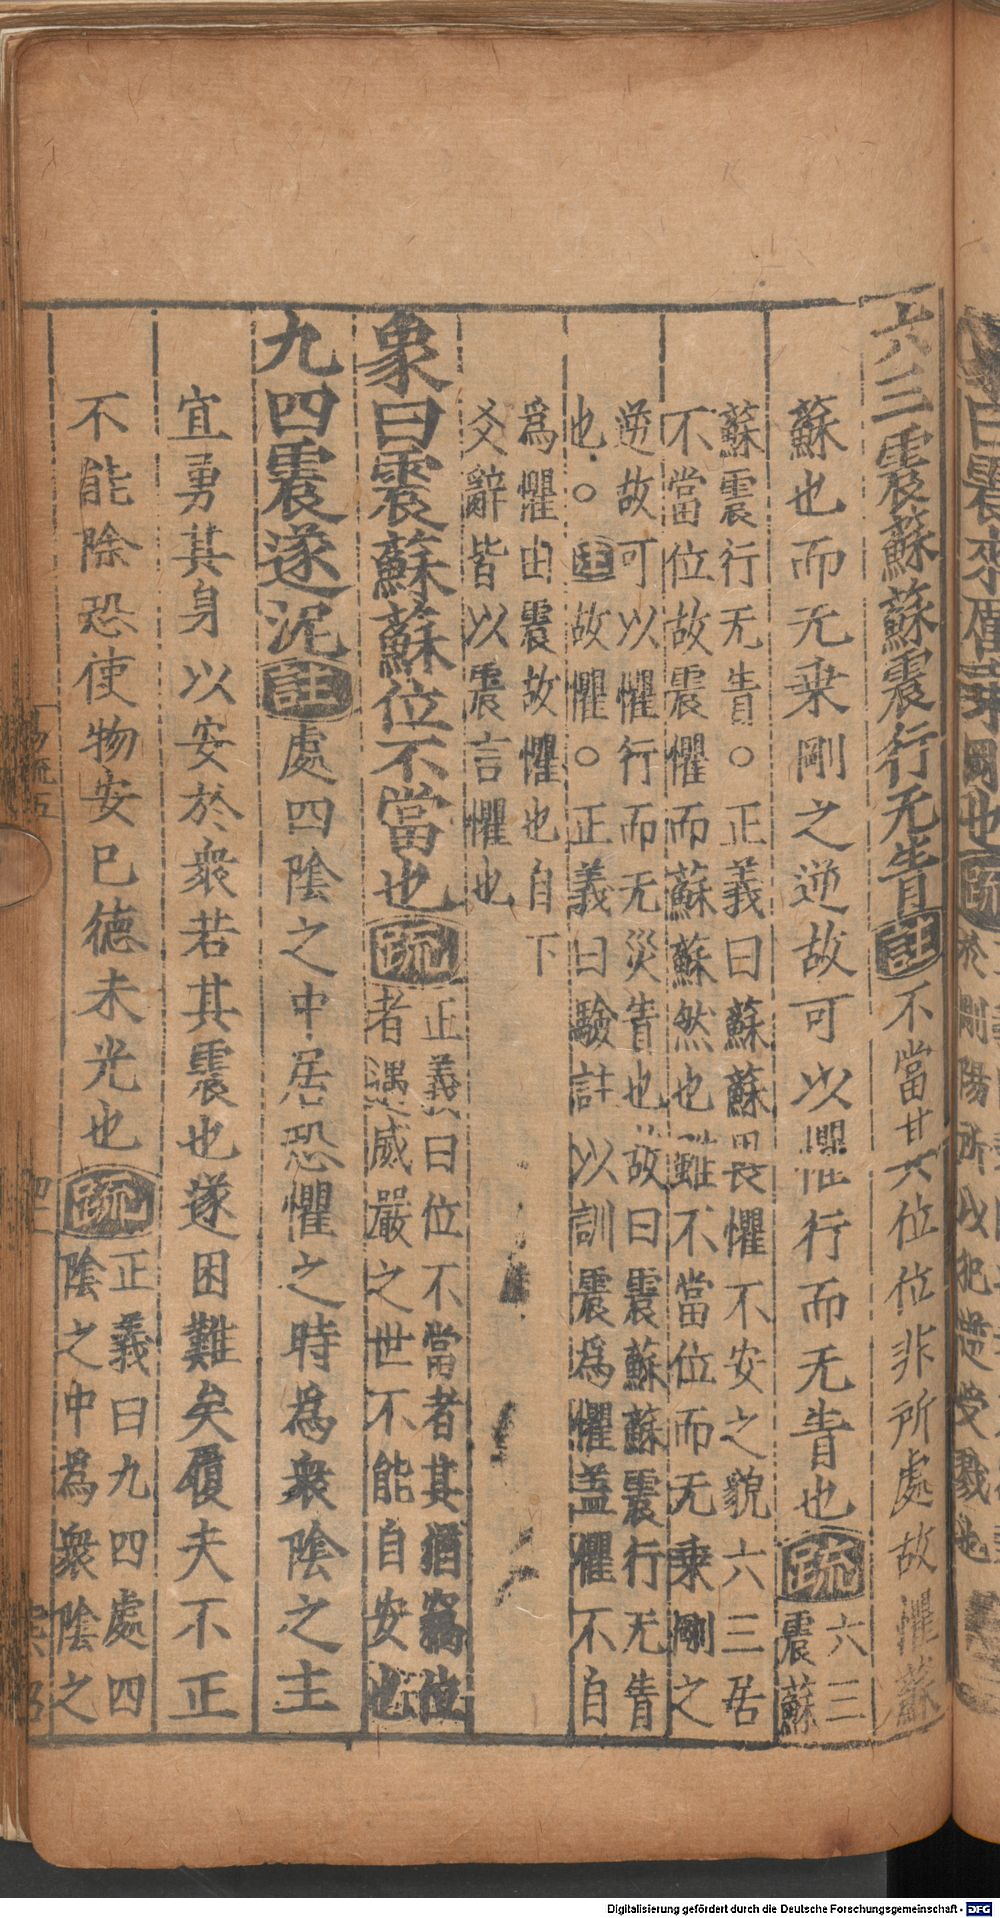 六三震蘇蘇震行无眚註不當其位位非所處故懼蘇
蘇也而无乗剛之逆故可以懼行而无眚也疏六三
震蘇
蘇震行无眚○正義曰蘇蘇畏懼不安之貌六三居
不當位故震懼而蘇蘇然也雖不當位而无乗剛之
逆故可以懼行而无災眚也故曰震蘇蘇震行无眚
也○註故懼○正義曰驗註以訓震爲懼盖懼不自
爲懼由震故懼也自下
爻辭皆以震言懼也
象曰震蘇蘇位不當也疏正義曰位不當者其猶竊位
者遇威嚴之世不能自安也
九四震遂泥註處四陰之中居恐懼之時爲衆陰之主
宜勇其身以安於衆若其震也遂困難矣履夫不正
不能除恐使物安已德未光也疏正義曰九四處四
陰之中爲衆陰之
易疏五
曰震來厲乗剛也疏
於剛陽所以犯逆受戮也
Digitalisierung gefördert durch die Deutsche Forschungsgemeinschaft - DFG